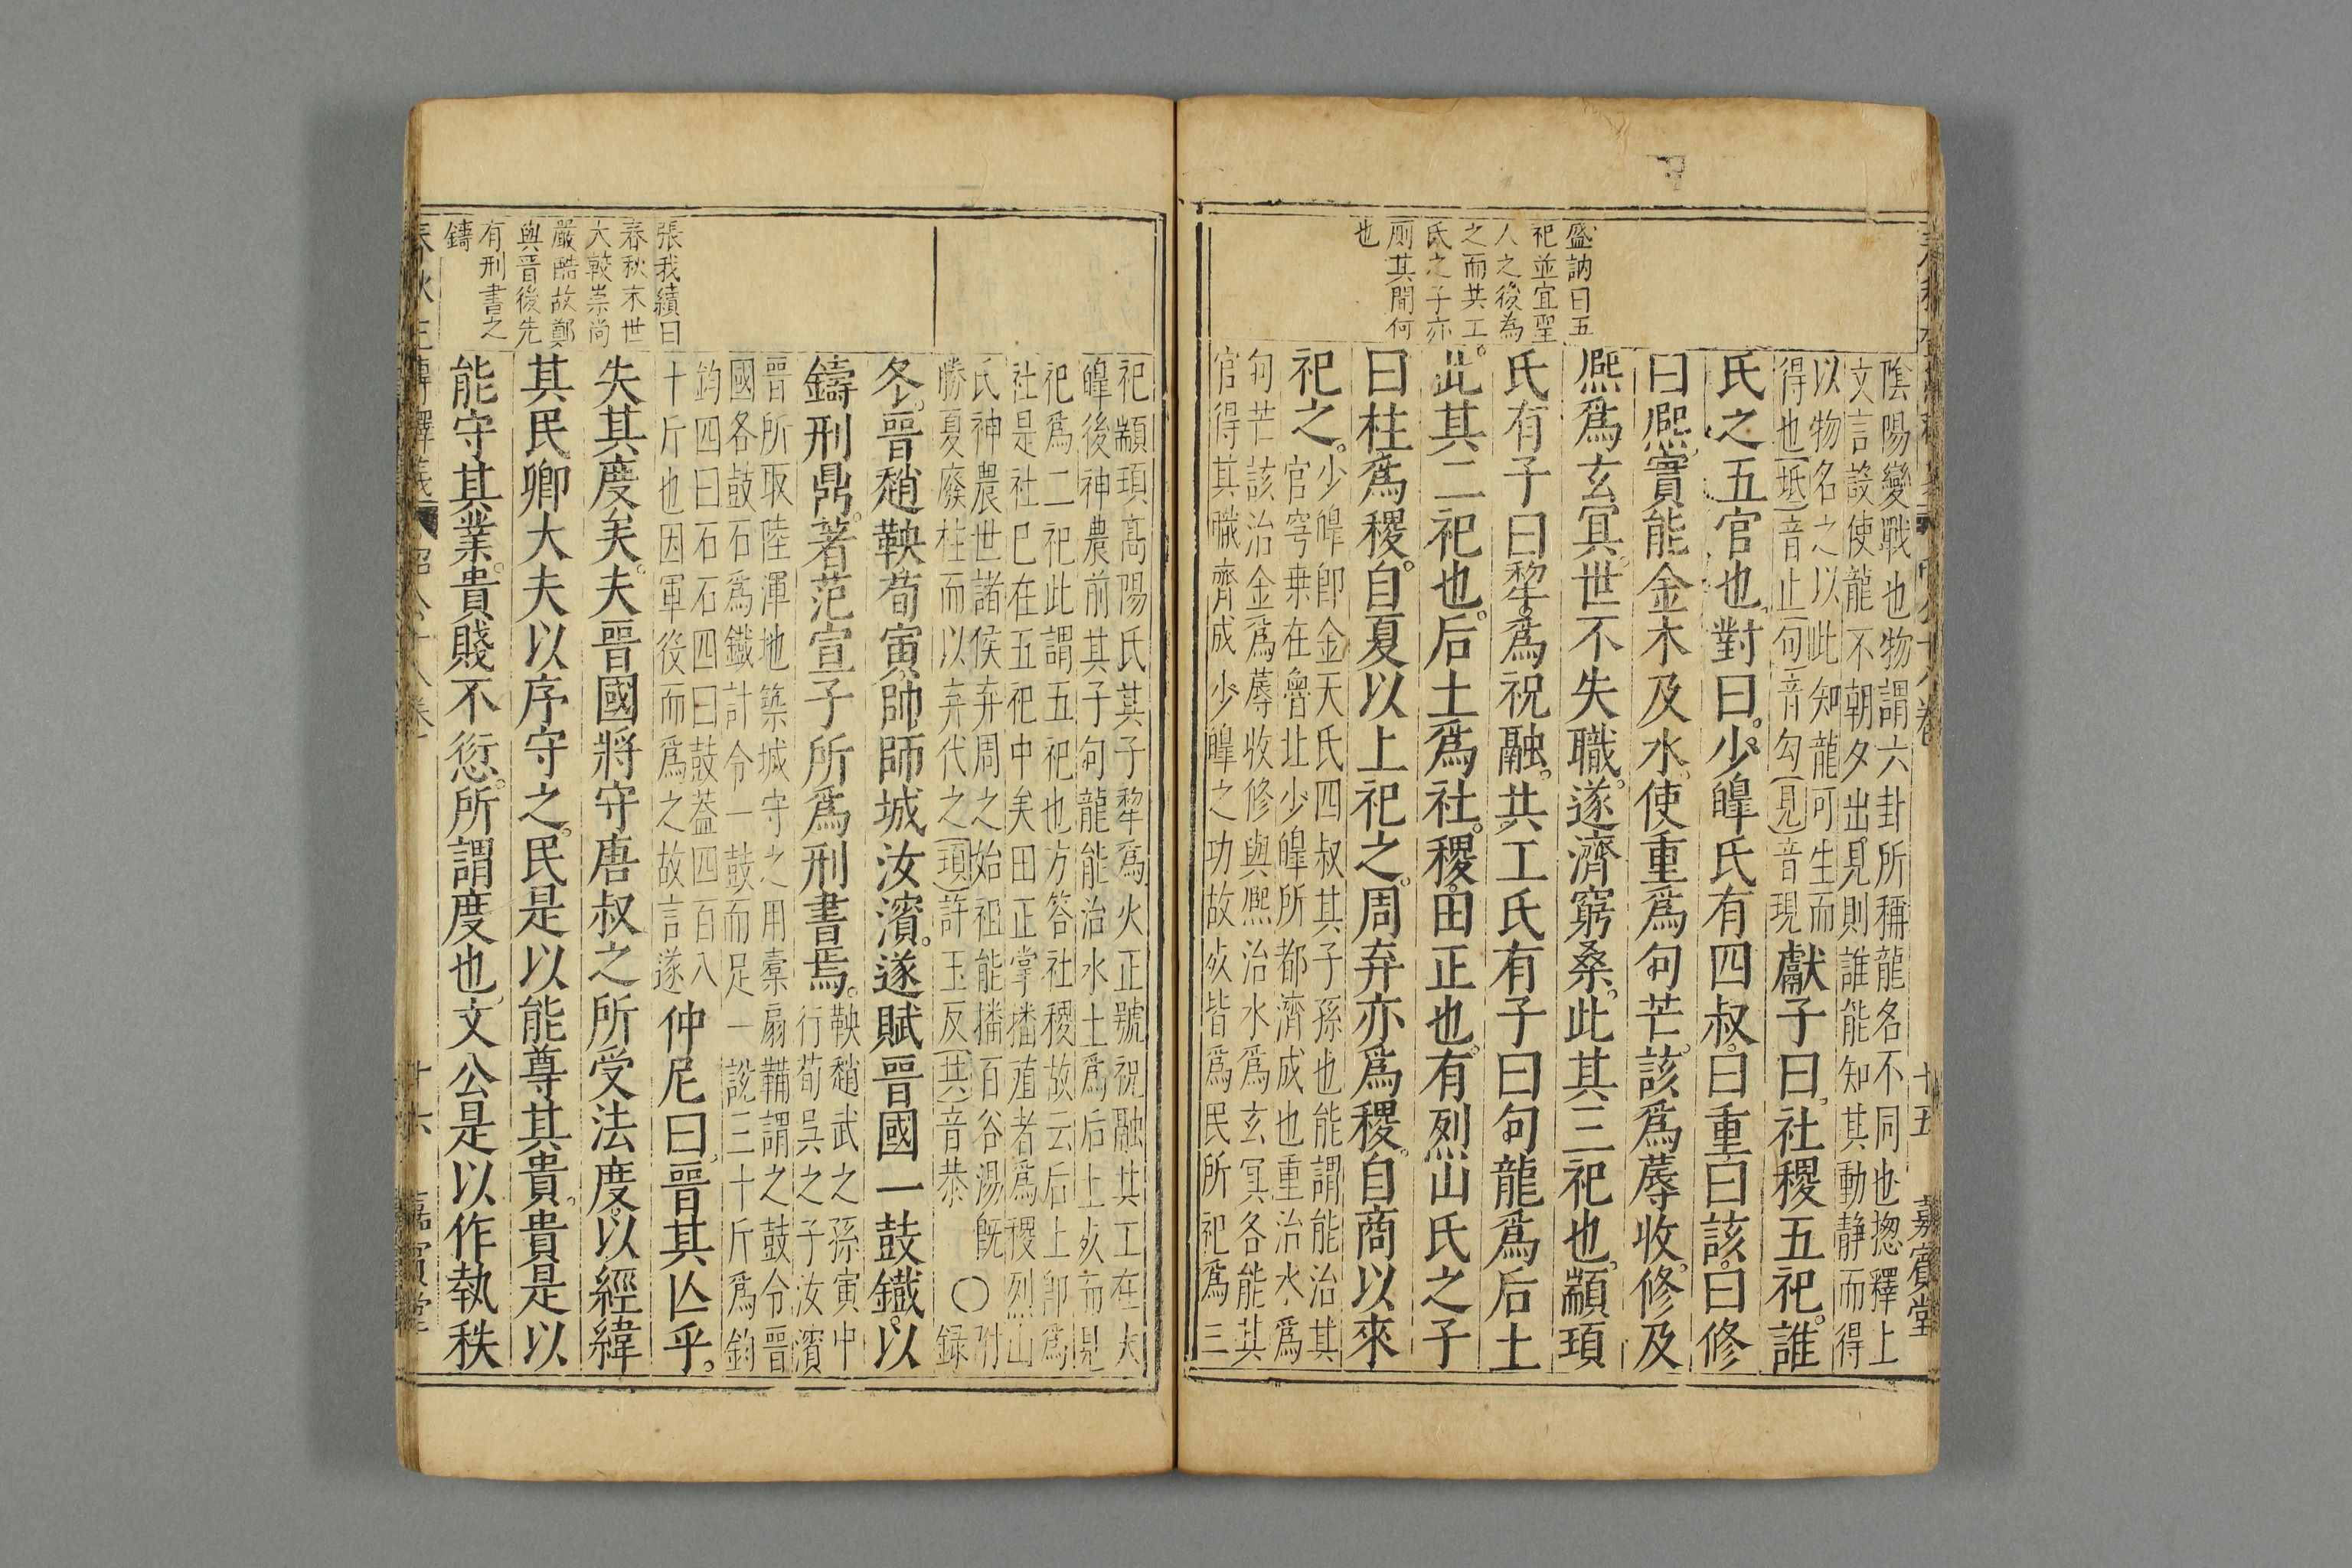 盛訥曰五
祀並宜聖
人之後為
之而共工
氏之子亦
厠其間何
也
陰陽變戰也物謂六卦所稱龍名不同也揔釋上
文言設使龍不朝夕出見則誰能知其動靜而得
以物名之以此知龍可生而
得也 坻音止 句音勾 見音現
獻子曰社稷五祀。誰
氏之五官也對曰。少皥氏有四叔。曰重曰該。曰修
曰熈實能金木及水。使重爲句芒。該爲蓐收。修及
熈爲玄冥。世不失職。遂濟窮桑。此其三祀也。顓頊
氏有子曰犂。爲祝融。共工氏有子曰句龍爲后土
此其二祀也。后土爲社。稷。田正也。有烈山氏之子
曰柱爲稷。自夏以上祀之。周弃亦爲稷。自商以來
祀之。
少皥卽金天氏四叔其子孫也能謂能治其
官穹桒在魯北少皥所都濟成也重治水爲
句芒該治金爲蓐收修與熈治水爲玄冥各能其
官得其職齊成少皥之功故死皆爲民所祀爲三
十五 嘉賓堂
祀顓頊高陽氏其子犂爲火正號祝融其工在大
皥後神農前其子句龍能治水土爲后土死而見
祀爲二祀此謂五祀也方答社稷故云后土卽爲
社是社巳在五祀中矣田正掌播殖者爲稷烈山
氏神農世諸侯弃周之始祖能播百谷湯旣
勝夏廢柱而以弃代之 頊許玉反 共音恭
○附
錄
冬。晉趙鞅荀寅帥師城汝濱。遂賦晉國一鼓鐵。以
鑄刑鼎。著范宣子所爲刑書焉。
鞅趙武之孫寅中
行荀吳之子汝濱
晉所取陸渾地築城守之用橐扇鞴謂之鼓令晉
國各鼓石爲鐵計令一鼓而足一說三十斤爲鈞
鈞四曰石石四曰鼓葢四百八
十斤也因軍役而爲之故言遂
仲尼曰晉其亾乎。
失其度矣。夫晉國將守唐叔之所受法度。以經緯
其民卿大夫以序守之。民是以能尊其貴。貴是以
能守其業。貴賤不愆。所謂度也文公是以作執秩
張我續曰
春秋末世
大較崇尚
嚴酷故鄭
與晉後先
有刑書之
鑄
春秋左傳釋義 昭公十八卷 廿六 嘉賓堂